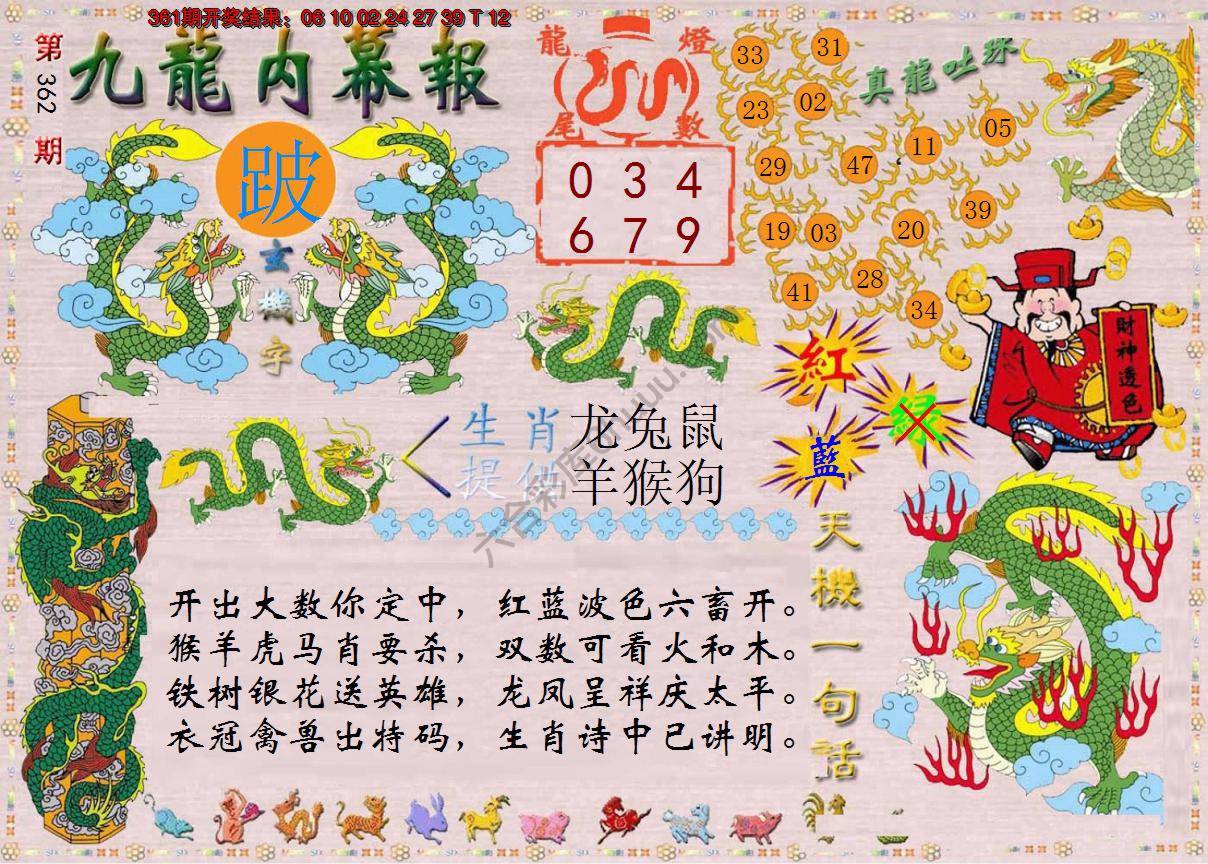 361期开奖结果：06 10 02 24 27 39 T 12
第362期
九龍内幕報
跛
玄機字
龍燈
尾數
0 3 4
6 7 9
真龍吐珠
33 31
23 02
11 05
29 47
39
19 03 20
28
41 34
財神透色
紅
绿
藍
生肖 龙兔鼠
提供 羊猴狗
天機一句話
开出大数你定中，红蓝波色六畜开。
猴羊虎马肖要杀，双数可看火和木。
铁树银花送英雄，龙凤呈祥庆太平。
衣冠禽兽出特码，生肖诗中已讲明。